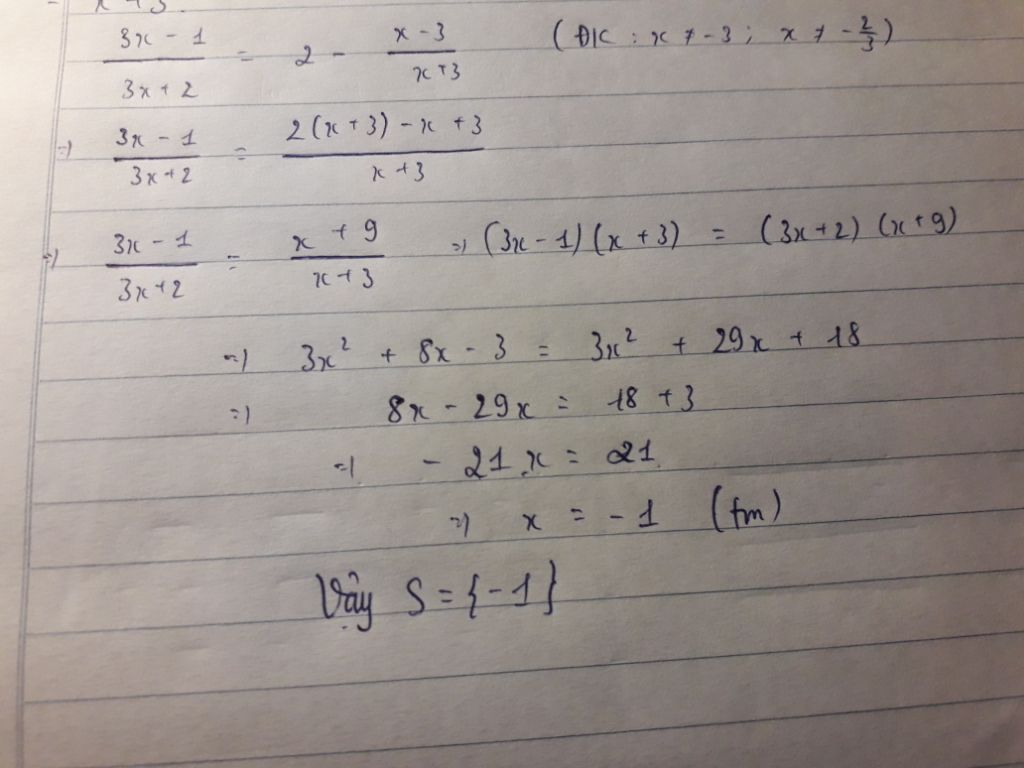 x + 3
(3x - 1)/(3x + 2) = 2 - (x - 3)/(x + 3) (ĐK : x ≠ -3 ; x ≠ -2/3)
=) (3x - 1)/(3x + 2) = (2(x + 3) - x + 3)/(x + 3)
=) (3x - 1)/(3x + 2) = (x + 9)/(x + 3) =) (3x - 1)(x + 3) = (3x + 2)(x + 9)
=) 3x² + 8x - 3 = 3x² + 29x + 18
=) 8x - 29x = 18 + 3
=) - 21x = 21
=) x = -1 (tm)
Vậy S = {-1}